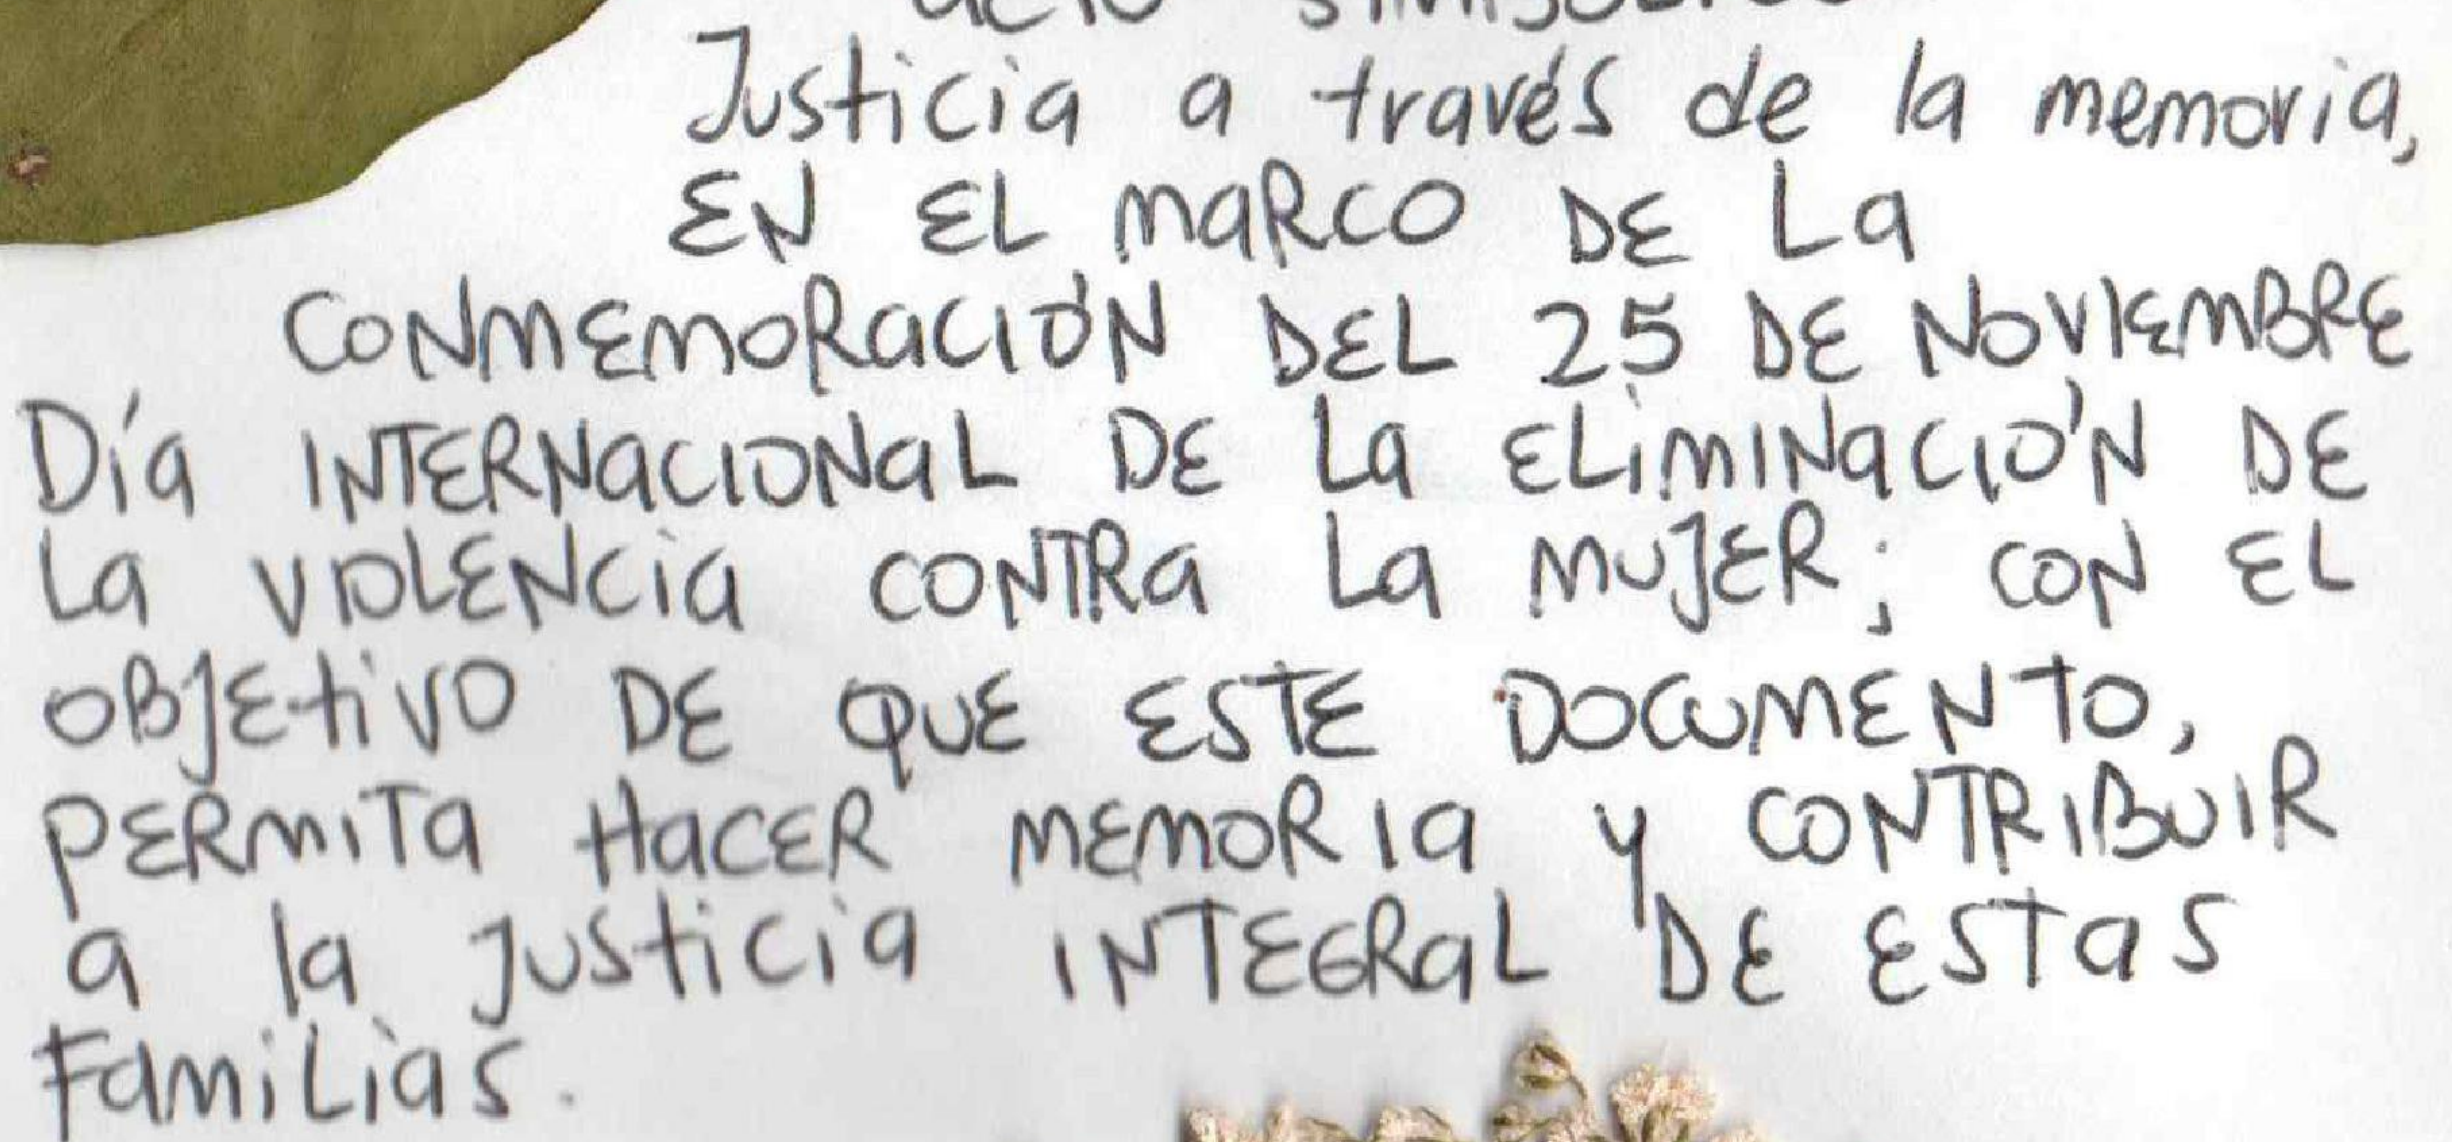 Justicia a través de la memoria,
EN EL MARCO DE La
CONMEMORACIÓN DEL 25 DE NOVIEMBRE
Día INTERNACIONAL DE La ELiMINACIÓN DE
La VIOLENCia CONTRa La MUJER; CON EL
OBJEtivO DE QUE ESTE DOCUMENTO,
PERMITa HaCER MEMORIa y CONTRIBUIR
a la Justicia INTEGRaL DE ESTas
FamiLias.